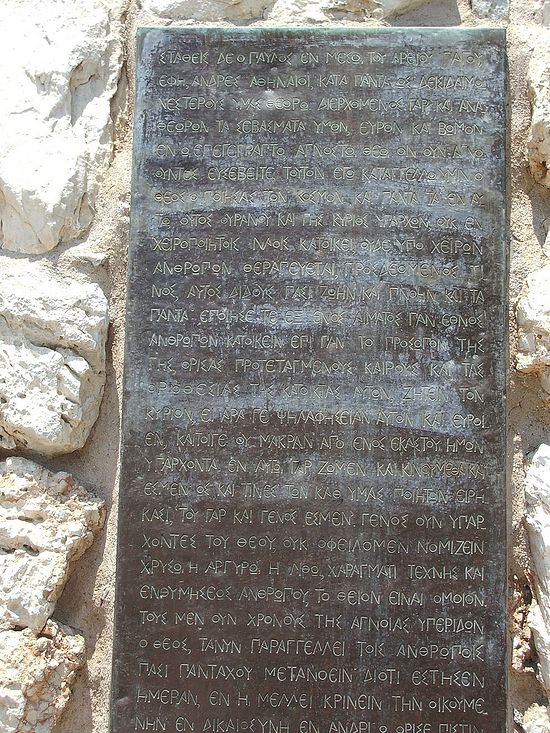 ΣΤΑΘΕΙΣ ΔΕ Ο ΠΑΥΛΟΣ ΕΝ ΜΕΣΩ, ΤΟΥ ΑΡΕΙΟΥ ΠΑΓΟΥ
ΕΦΗ, ΑΝΔΡΕΣ ΑΘΗΝΑΙΟΙ, ΚΑΤΑ ΠΑΝΤΑ ΩΣ ΔΕΙΣΙΔΑΙΜΟ
ΝΕΣΤΕΡΟΥΣ ΥΜΑΣ ΘΕΩΡΩ ΔΙΕΡΧΟΜΕΝΟΣ ΓΑΡ ΚΑΙ ΑΝΑ
ΘΕΩΡΩΝ ΤΑ ΣΕΒΑΣΜΑΤΑ ΥΜΩΝ, ΕΥΡΟΝ ΚΑΙ ΒΩΜΟΝ
ΕΝ Ω ΕΠΕΓΕΓΡΑΠΤΟ ΑΓΝΩΣΤΩ ΘΕΩ ΟΝ ΟΥΝ ΑΓΝΟ
ΟΥΝΤΕΣ ΕΥΣΕΒΕΙΤΕ ΤΟΥΤΟΝ ΕΓΩ ΚΑΤΑΓΓΕΛΛΩ ΥΜΙΝ Ο
ΘΕΟΣ Ο ΠΟΙΗΣΑΣ ΤΟΝ ΚΟΣΜΟΝ ΚΑΙ ΠΑΝΤΑ ΤΑ ΕΝ ΑΥ
ΤΩ, ΟΥΤΟΣ ΟΥΡΑΝΟΥ ΚΑΙ ΓΗΣ ΚΥΡΙΟΣ ΥΠΑΡΧΩΝ, ΟΥΚ ΕΝ
ΧΕΙΡΟΠΟΙΗΤΟΙΣ ΝΑΟΙΣ ΚΑΤΟΙΚΕΙ ΟΥΔΕ ΥΠΟ ΧΕΙΡΩΝ
ΑΝΘΡΩΠΩΝ ΘΕΡΑΠΕΥΕΤΑΙ, ΠΡΟΣΔΕΟΜΕΝΟΣ ΤΙ
ΝΟΣ, ΑΥΤΟΣ ΔΙΔΟΥΣ ΠΑΣΙ ΖΩΗΝ ΚΑΙ ΠΝΟΗΝ ΚΑΙ ΤΑ
ΠΑΝΤΑ ΕΠΟΙΗΣΕ ΤΕ ΕΞ ΕΝΟΣ ΑΙΜΑΤΟΣ ΠΑΝ ΕΘΝΟΣ
ΑΝΘΡΩΠΩΝ ΚΑΤΟΙΚΕΙΝ ΕΠΙ ΠΑΝ ΤΟ ΠΡΟΣΩΠΟΝ ΤΗΣ
ΓΗΣ ΟΡΙΣΑΣ ΠΡΟΤΕΤΑΓΜΕΝΟΥΣ ΚΑΙΡΟΥΣ ΚΑΙ ΤΑΣ
ΟΡΟΘΕΣΙΑΣ ΤΗΣ ΚΑΤΟΙΚΙΑΣ ΑΥΤΩΝ, ΖΗΤΕΙΝ ΤΟΝ
ΚΥΡΙΟΝ, ΕΙ ΑΡΑ ΓΕ ΨΗΛΑΦΗΣΕΙΑΝ ΑΥΤΟΝ ΚΑΙ ΕΥΡΟΙ
ΕΝ, ΚΑΙΤΟΙΓΕ ΟΥ ΜΑΚΡΑΝ ΑΠΟ ΕΝΟΣ ΕΚΑΣΤΟΥ ΗΜΩΝ
ΥΠΑΡΧΟΝΤΑ. ΕΝ ΑΥΤΩ ΓΑΡ ΖΩΜΕΝ ΚΑΙ ΚΙΝΟΥΜΕΘΑ ΚΑΙ
ΕΣΜΕΝ ΩΣ ΚΑΙ ΤΙΝΕΣ ΤΩΝ ΚΑΘ ΥΜΑΣ ΠΟΙΗΤΩΝ ΕΙΡΗ
ΚΑΣΙ, ΤΟΥ ΓΑΡ ΚΑΙ ΓΕΝΟΣ ΕΣΜΕΝ ΓΕΝΟΣ ΟΥΝ ΥΠΑΡ
ΧΟΝΤΕΣ ΤΟΥ ΘΕΟΥ, ΟΥΚ ΟΦΕΙΛΟΜΕΝ ΝΟΜΙΖΕΙΝ
ΧΡΥΣΩ, Η ΑΡΓΥΡΩ Η ΛΙΘΩ, ΧΑΡΑΓΜΑΤΙ ΤΕΧΝΗΣ ΚΑΙ
ΕΝΘΥΜΗΣΕΩΣ ΑΝΘΡΩΠΟΥ, ΤΟ ΘΕΙΟΝ ΕΙΝΑΙ ΟΜΟΙΟΝ.
ΤΟΥΣ ΜΕΝ ΟΥΝ ΧΡΟΝΟΥΣ ΤΗΣ ΑΓΝΟΙΑΣ ΥΠΕΡΙΔΩΝ
Ο ΘΕΟΣ, ΤΑΝΥΝ ΠΑΡΑΓΓΕΛΛΕΙ ΤΟΙΣ ΑΝΘΡΩΠΟΙΣ
ΠΑΣΙ ΠΑΝΤΑΧΟΥ ΜΕΤΑΝΟΕΙΝ ΔΙΟΤΙ ΕΣΤΗΣΕΝ
ΗΜΕΡΑΝ, ΕΝ Η ΜΕΛΛΕΙ ΚΡΙΝΕΙΝ ΤΗΝ ΟΙΚΟΥΜΕ
ΝΗΝ ΕΝ ΔΙΚΑΙΟΣΥΝΗ ΕΝ ΑΝΔΡΙ Ω ΩΡΙΣΕ ΠΙΣΤΙΝ